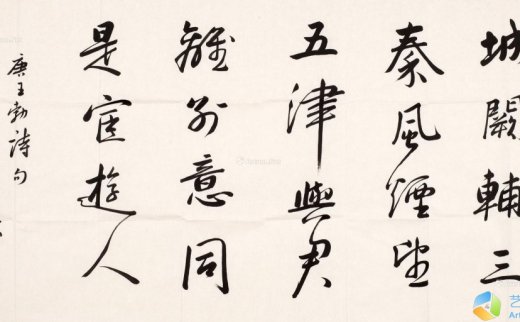 城闕輔三
秦風煙望
五津與君
離別意同
是宦遊人
唐王勃詩句
艺
Art